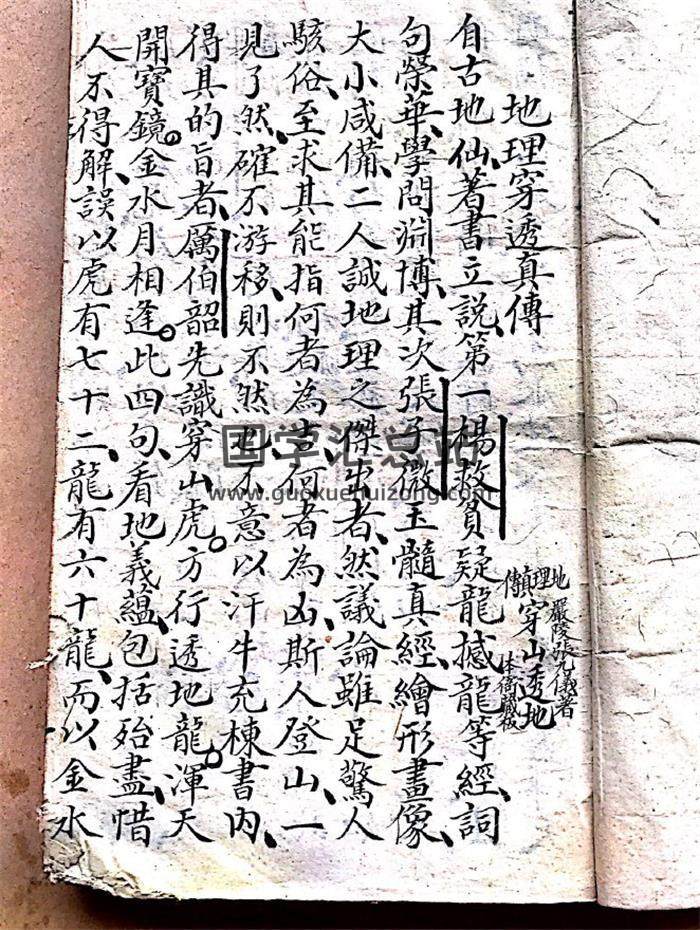 嚴陵張九儀著
穿山透地
本衙藏板
地理穿透真傳
自古地仙、著書立說、第一楊救貧疑龍撼龍等經、詞
句榮華、學問淵博、其次張子微玉髓真經、繪形畫像、
大小咸備、二人誠地理之傑出者、然議論雖足驚人
駭俗、至求其能指何者為吉、何者為凶斯人登山、一
見了然、確不游移、則不然也、不意以汗牛充棟書內、
得其的旨者、厲伯韶先識穿山虎。方行透地龍。渾天
開寶鏡。金水月相逢。此四句、看地義蘊、包括殆盡、惜
人不得解、誤以虎有七十二、龍有六十龍、而以金水
国学汇总站
www.guoxuehuizong.com